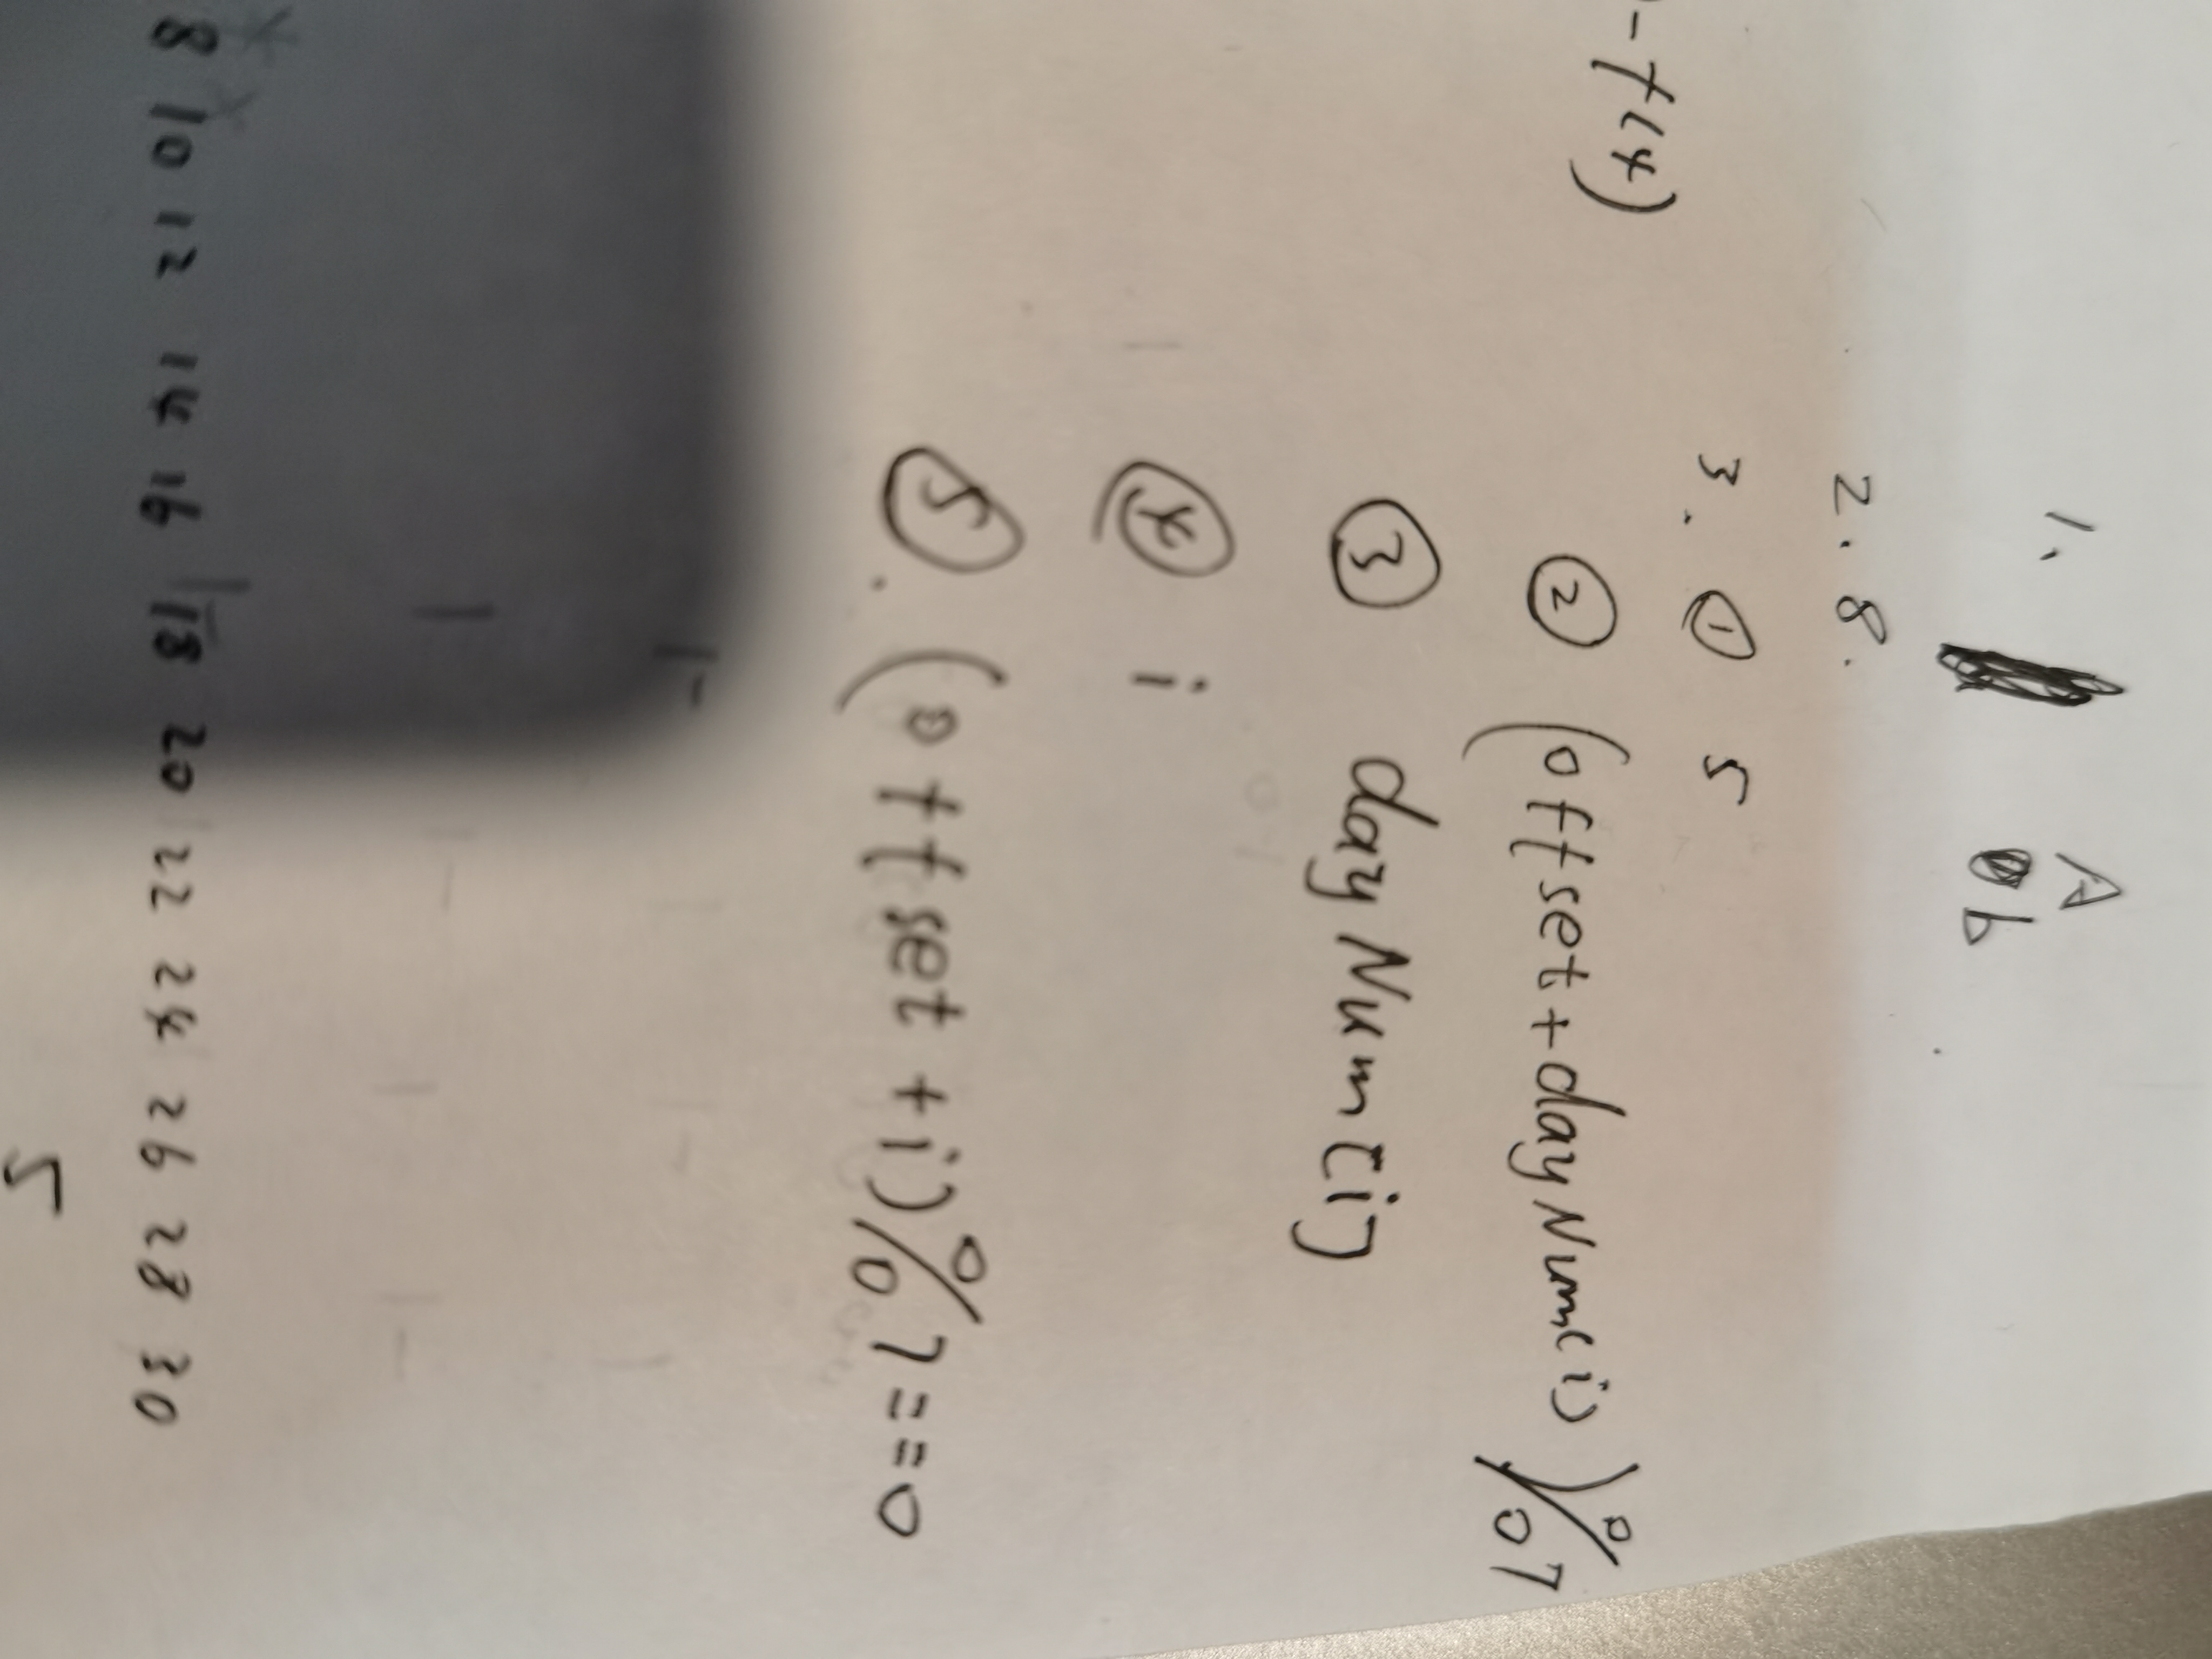 1. A
b
2. 8.
3. ① 5
-f(4)
② (offset+dayNum(i))%7
③ dayNum[i]
④ i
⑤. (offset+i)%7==0
8 10 12 14 16 18 20 22 24 26 28 30
5